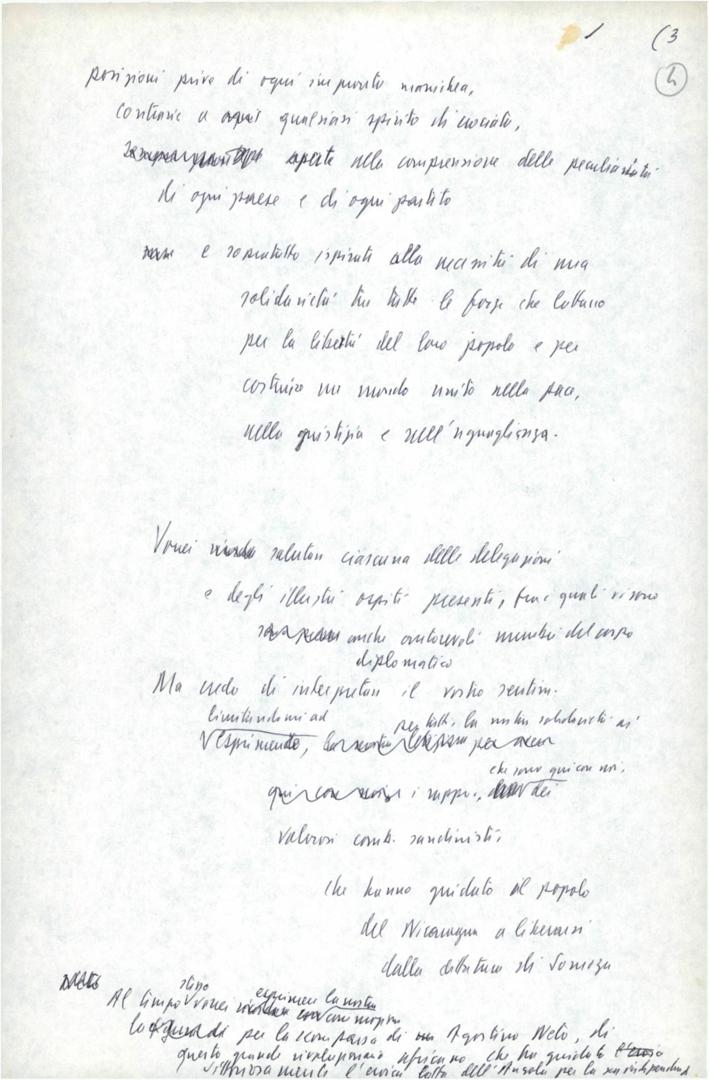 1 (3
4
posizioni prive di ogni impronta manichea,
contrarie a ogni qualsiasi spirito di crociata,
aperte alla comprensione delle peculiarità
di ogni paese e di ogni partito
e sopratutto ispirati alla necessità di una
solidarietà tra tutte le forze che lottano
per la libertà del loro popolo e per
costruire un mondo unito nella pace,
nella giustizia e nell'uguaglianza.
Vorrei salutare ciascuna delle delegazioni
e degli illustri ospiti presenti, fra i quali vi sono
anche autorevoli membri del corpo
diplomatico
Ma credo di interpretare il vostro sentim.
limitandomi ad per tutti la nostra solidarietà ai
esprimendo, la nostra per
che sono qui con noi,
qui con noi i rappr. dei
valorosi comb. sandinisti,
che hanno guidato il popolo
del Nicaragua a liberarsi
dalla dittatura di Somoza
stesso esprimere la nostra
Al tempo vorrei commozione
per la scomparsa di Agostino Neto, di
questo grande rivoluzionario africano che ha guidato
vittoriosamente l'eroica lotta dell'Angola per la sua independenza